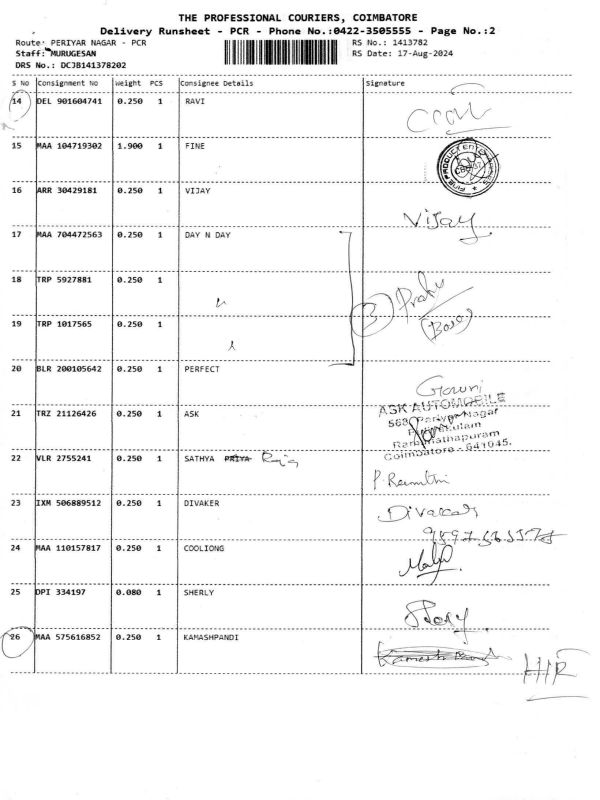 THE PROFESSIONAL COURIERS, COIMBATORE
Delivery Runsheet - PCR - Phone No.:0422-3505555 - Page No.:2
Route: PERIYAR NAGAR - PCR RS No.: 1413782
Staff: MURUGESAN RS Date: 17-Aug-2024
DRS No.: DCJB141378202
S No Consignment No Weight PCS Consignee Details Signature
14 DEL 901604741 0.250 1 RAVI
15 MAA 104719302 1.900 1 FINE
16 ARR 30429181 0.250 1 VIJAY
Vijay
17 MAA 704472563 0.250 1 DAY N DAY
18 TRP 5927881 0.250 1
3
19 TRP 1017565 0.250 1
20 BLR 200105642 0.250 1 PERFECT
Gowri
ASK AUTOMOBILE
568, Periyar Nagar
21 TRZ 21126426 0.250 1 ASK
Ramanathapuram
Coimbatore - 641045.
22 VLR 2755241 0.250 1 SATHYA PRIYA
23 IXM 506889512 0.250 1 DIVAKER
Divakar
24 MAA 110157817 0.250 1 COOLIONG
25 DPI 334197 0.080 1 SHERLY
26 MAA 575616852 0.250 1 KAMASHPANDI